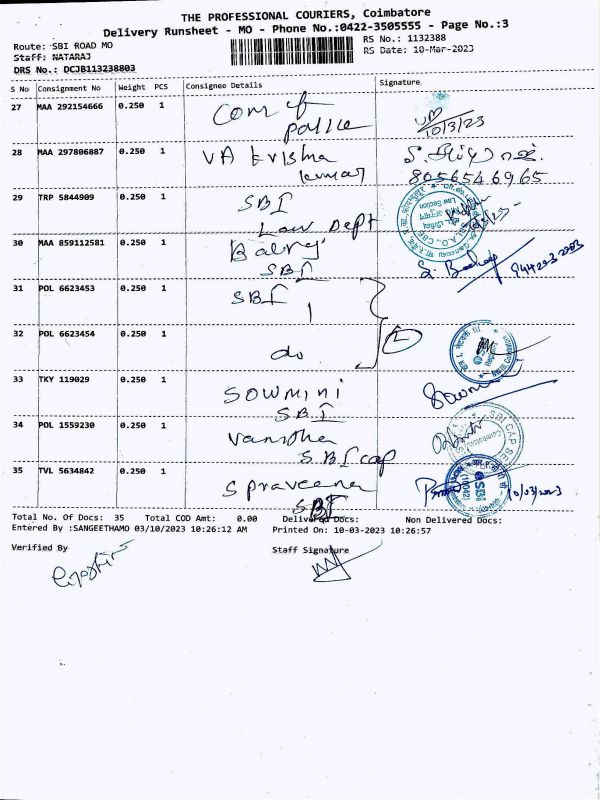 THE PROFESSIONAL COURIERS, Coimbatore
Delivery Runsheet - MO - Phone No.:0422-3505555 - Page No.:3
Route: SBI ROAD MO
RS No.: 1132388
Staff: NATARAJ
RS Date: 10-Mar-2023
DRS No.: DCJB113238803
S No Consignment No Weight PCS Consignee Details Signature
27 MAA 292154666 0.250 1 Com of
police
10/3/23
28 MAA 297806887 0.250 1 VA Krishna
kumar
8056546965
29 TRP 5844909 0.250 1 SBI
Law Dept
Law Section
30 MAA 859112581 0.250 1 Balraj
SBI
31 POL 6623453 0.250 1 SBI
32 POL 6623454 0.250 1 do
33 TKY 119029 0.250 1 SOWMINI
SBI
34 POL 1559230 0.250 1 Vanitha
SBI cap
SBI CAP
Coimbatore
35 TVL 5634842 0.250 1 S praveena
SBI
SBI
10/03/2023
Total No. Of Docs: 35 Total COD Amt: 0.00 Delivered Docs: Non Delivered Docs:
Entered By :SANGEETHAMO 03/10/2023 10:26:12 AM Printed On: 10-03-2023 10:26:57
Verified By Staff Signature